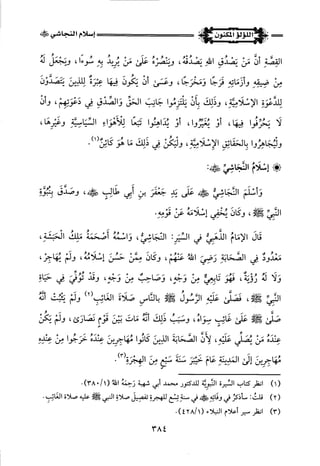 اللؤلؤ المكنون
إسلام النجاشي ﵁
القصة أن من يصدق الله يصدقه، وينصره على من يريد به سوءا، ويجعل له
من ضيقه وأزماته فرجا ومخرجا، وعسى أن يكون فيها عبرة للذين يتصدون
للدعوة الإسلامية، وذلك بأن يلتزموا جانب الحق والصدق في دعوتهم، وأن
لا يحرفوا فيها، أو يغيروا، أو يداهنوا تبعا للأهواء السياسية وغيرها،
وليجاهروا بالحقائق الإسلامية، وليكن في ذلك ما هو كائن(١).
إسلام النجاشي ﵁:
وأسلم النجاشي ﵁ على يد جعفر بن أبي طالب ﵁، وصدق بنبوة
النبي ﷺ، وكان يخفي إسلامه عن قومه.
قال الإمام الذهبي في السير: النجاشي، واسمه أصحمة ملك الحبشة،
معدود في الصحابة رضي الله عنهم، وكان ممن حسن إسلامه، ولم يهاجر،
ولا له رؤية، فهو تابعي من وجه، وصاحب من وجه، وقد توفي في حياة
النبي ﷺ، فصلى عليه الرسول ﷺ بالناس صلاة الغائب(٢) ولم يثبت أنه
صلى ﷺ على غائب سواه، وسبب ذلك أنه مات بين قوم نصارى، ولم يكن
عنده من يصلي عليه، لأن الصحابة الذين كانوا مهاجرين عنده خرجوا من عنده
مهاجرين إلى المدينة عام خيبر سنة سبع من الهجرة(٣).
(١) انظر كتاب السيرة النبوية للدكتور محمد أبي شهبة رحمه الله (٣٨٠/١).
(٢) قلت: سأذكر في وفاته ﵁ في سنة تسع للهجرة تفصيل صلاة النبي ﷺ عليه صلاة الغائب.
(٣) انظر سير أعلام النبلاء (٤٢٨/١).
٣٨٤